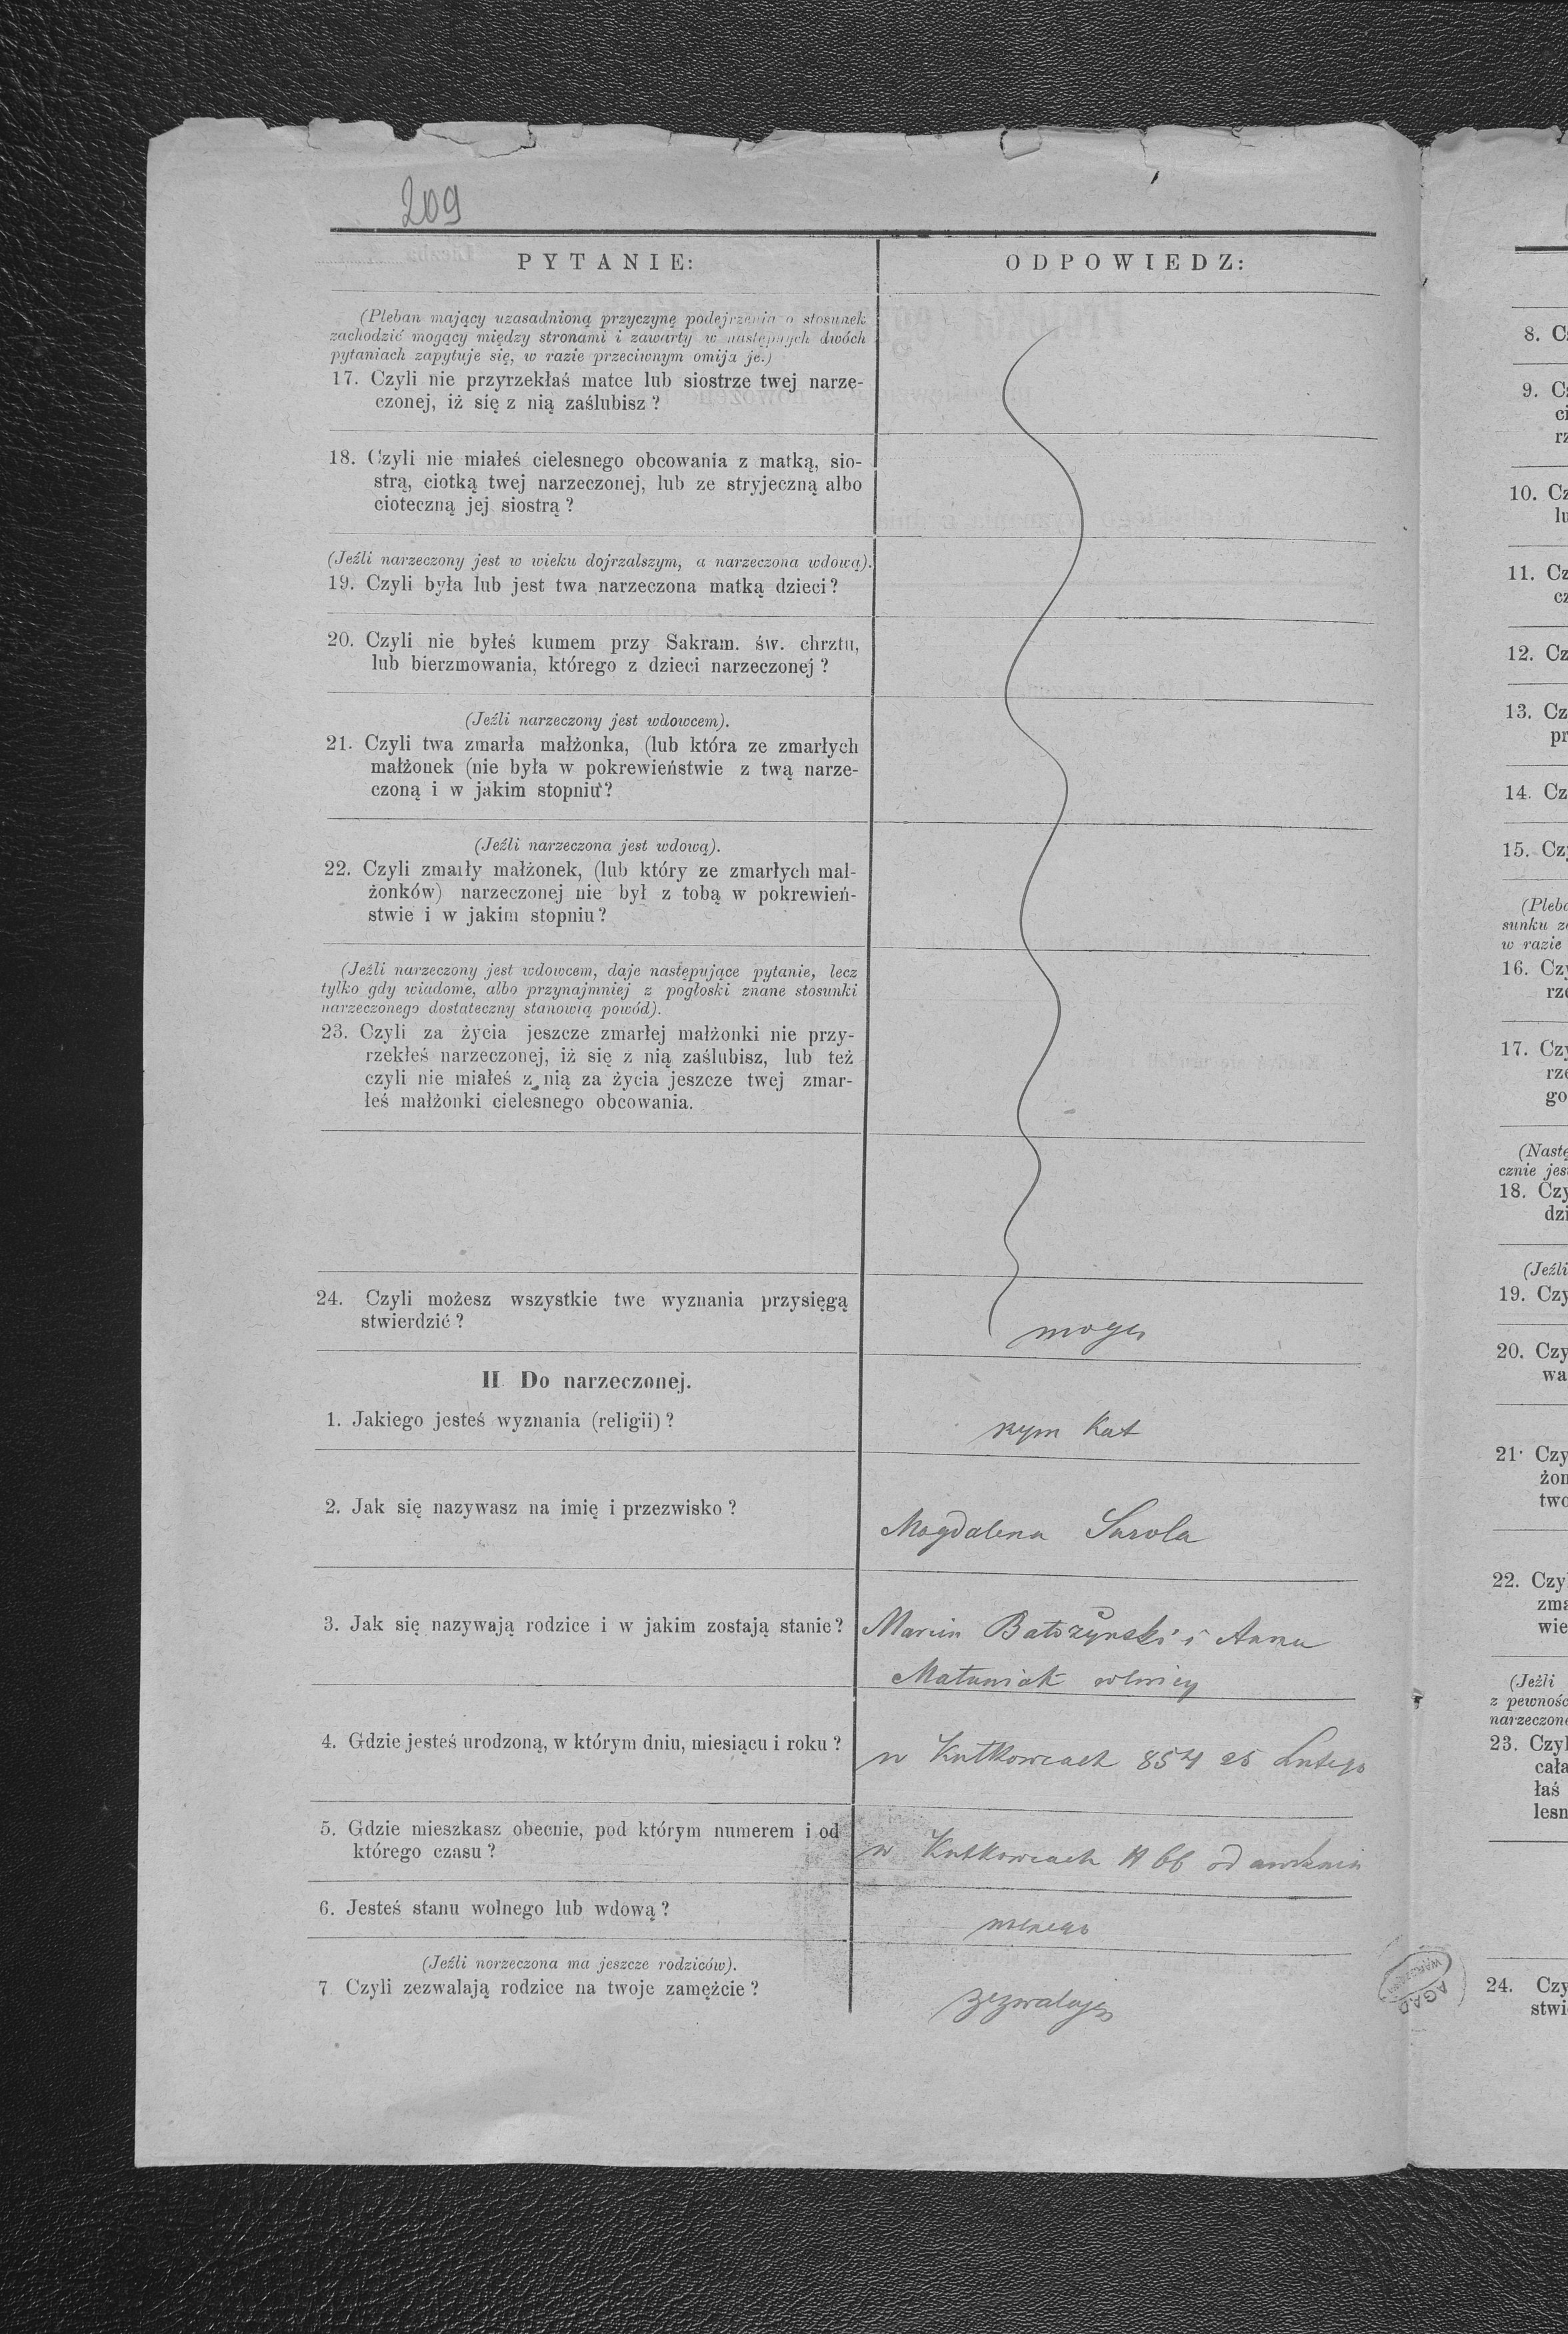 209
PYTANIE:
ODPOWIEDZ:
(Pleban mający uzasadnioną przyczynę podejrzenia o stosunek
zachodzić mogący między stronami i zawarty w następnych dwóch
pytaniach zapytuje się, w razie przeciwnym omija je.)
17. Czyli nie przyrzekłaś matce lub siostrze twej narze-
czonej, iż się z nią zaślubisz?
18. Czyli nie miałeś cielesnego obcowania z matką, sio-
strą, ciotką twej narzeczonej, lub ze stryjeczną albo
cioteczną jej siostrą?
(Jeźli narzeczony jest w wieku dojrzalszym, a narzeczona wdową).
19. Czyli była lub jest twa narzeczona matką dzieci?
20. Czyli nie byłeś kumem przy Sakram. św. chrztu,
lub bierzmowania, którego z dzieci narzeczonej?
(Jeźli narzeczony jest wdowcem).
21. Czyli twa zmarła małżonka, (lub która ze zmarłych
małżonek (nie była w pokrewieństwie z twą narze-
czoną i w jakim stopniu?
(Jeźli narzeczona jest wdową).
22. Czyli zmarły małżonek, (lub który ze zmarłych mał-
żonków) narzeczonej nie był z tobą w pokrewień-
stwie i w jakim stopniu?
(Jeźli narzeczony jest wdowcem, daje następujące pytanie, lecz
tylko gdy wiadome, albo przynajmniej z pogłoski znane stosunki
narzeczonego dostateczny stanowią powód).
23. Czyli za życia jeszcze zmarłej małżonki nie przy-
rzekłeś narzeczonej, iż się z nią zaślubisz, lub też
czyli nie miałeś z nią za życia jeszcze twej zmar-
łeś małżonki cielesnego obcowania.
24. Czyli możesz wszystkie twe wyznania przysięgą
stwierdzić?
mogę
II Do narzeczonej.
1. Jakiego jesteś wyznania (religii)?
rym kat
2. Jak się nazywasz na imię i przezwisko?
Magdalena
3. Jak się nazywają rodzice i w jakim zostają stanie?
Marcin i Anna
Matuniak
4. Gdzie jesteś urodzoną, w którym dniu, miesiącu i roku?
w Kutkowcach 854 25 Lutego
5. Gdzie mieszkasz obecnie, pod którym numerem i od
którego czasu?
w Kutkowcach N 66 od
6. Jesteś stanu wolnego lub wdową?
wolnego
(Jeźli norzeczona ma jeszcze rodziców).
7 Czyli zezwalają rodzice na twoje zamężcie?
zezwalają
AGAD
WARSZAWA
8. C
9. C
ci
rz
10. Cz
lu
11. Cz
cz
12. Cz
13. Cz
pr
14. Cz
15. Czy
(Pleba
sunku z
w razie
16. Czy
rze
17. Czy
rze
go
(Nastę
cznie jes
18. Czy
dzi
(Jeźli
19. Czy
20. Czy
wa
21. Czy
żon
two
22. Czy
zma
wie
(Jeźli
z pewnośc
narzeczone
23. Czyl
cała
łaś
lesn
24. Czy
stwi